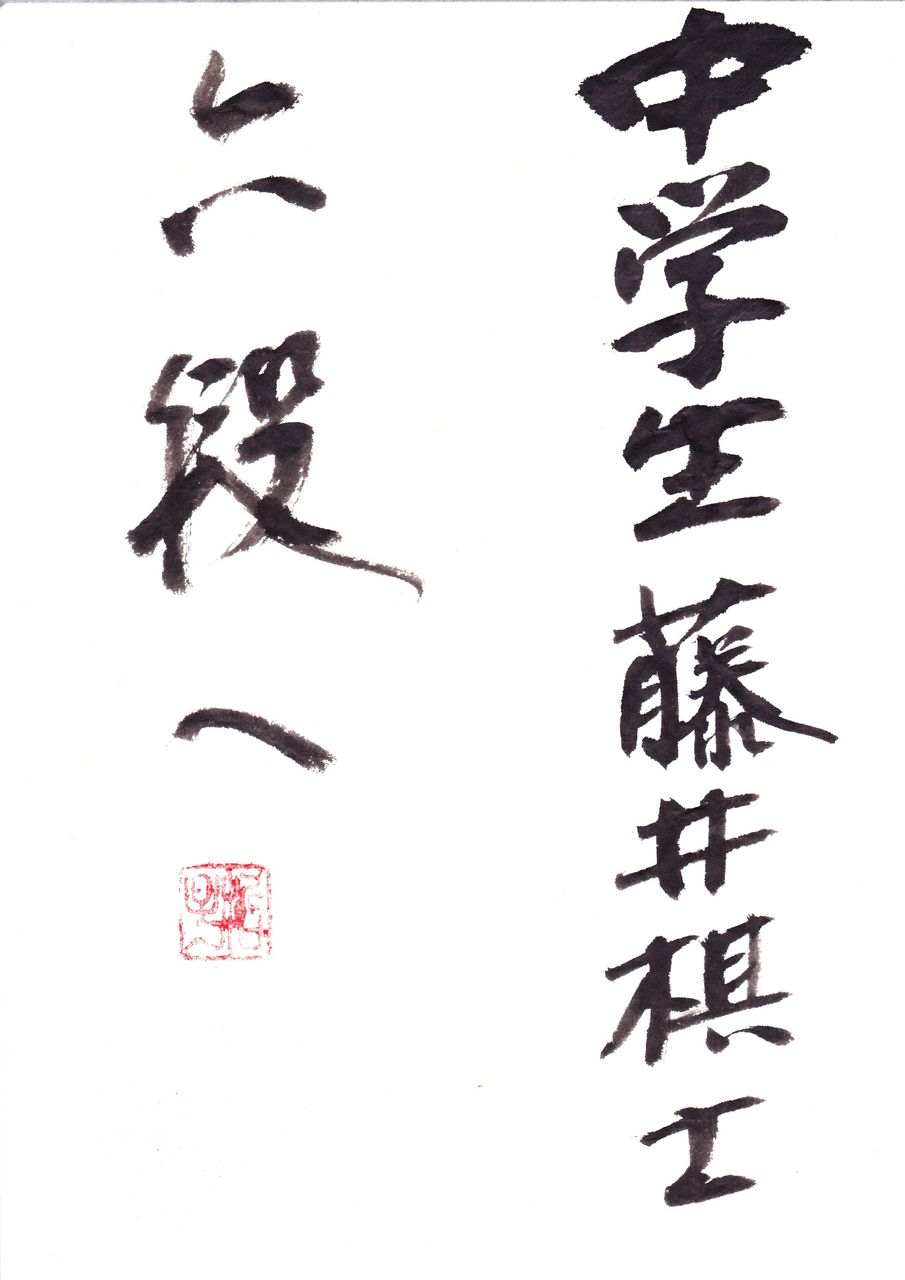 中学生藤井棋士
六段へ